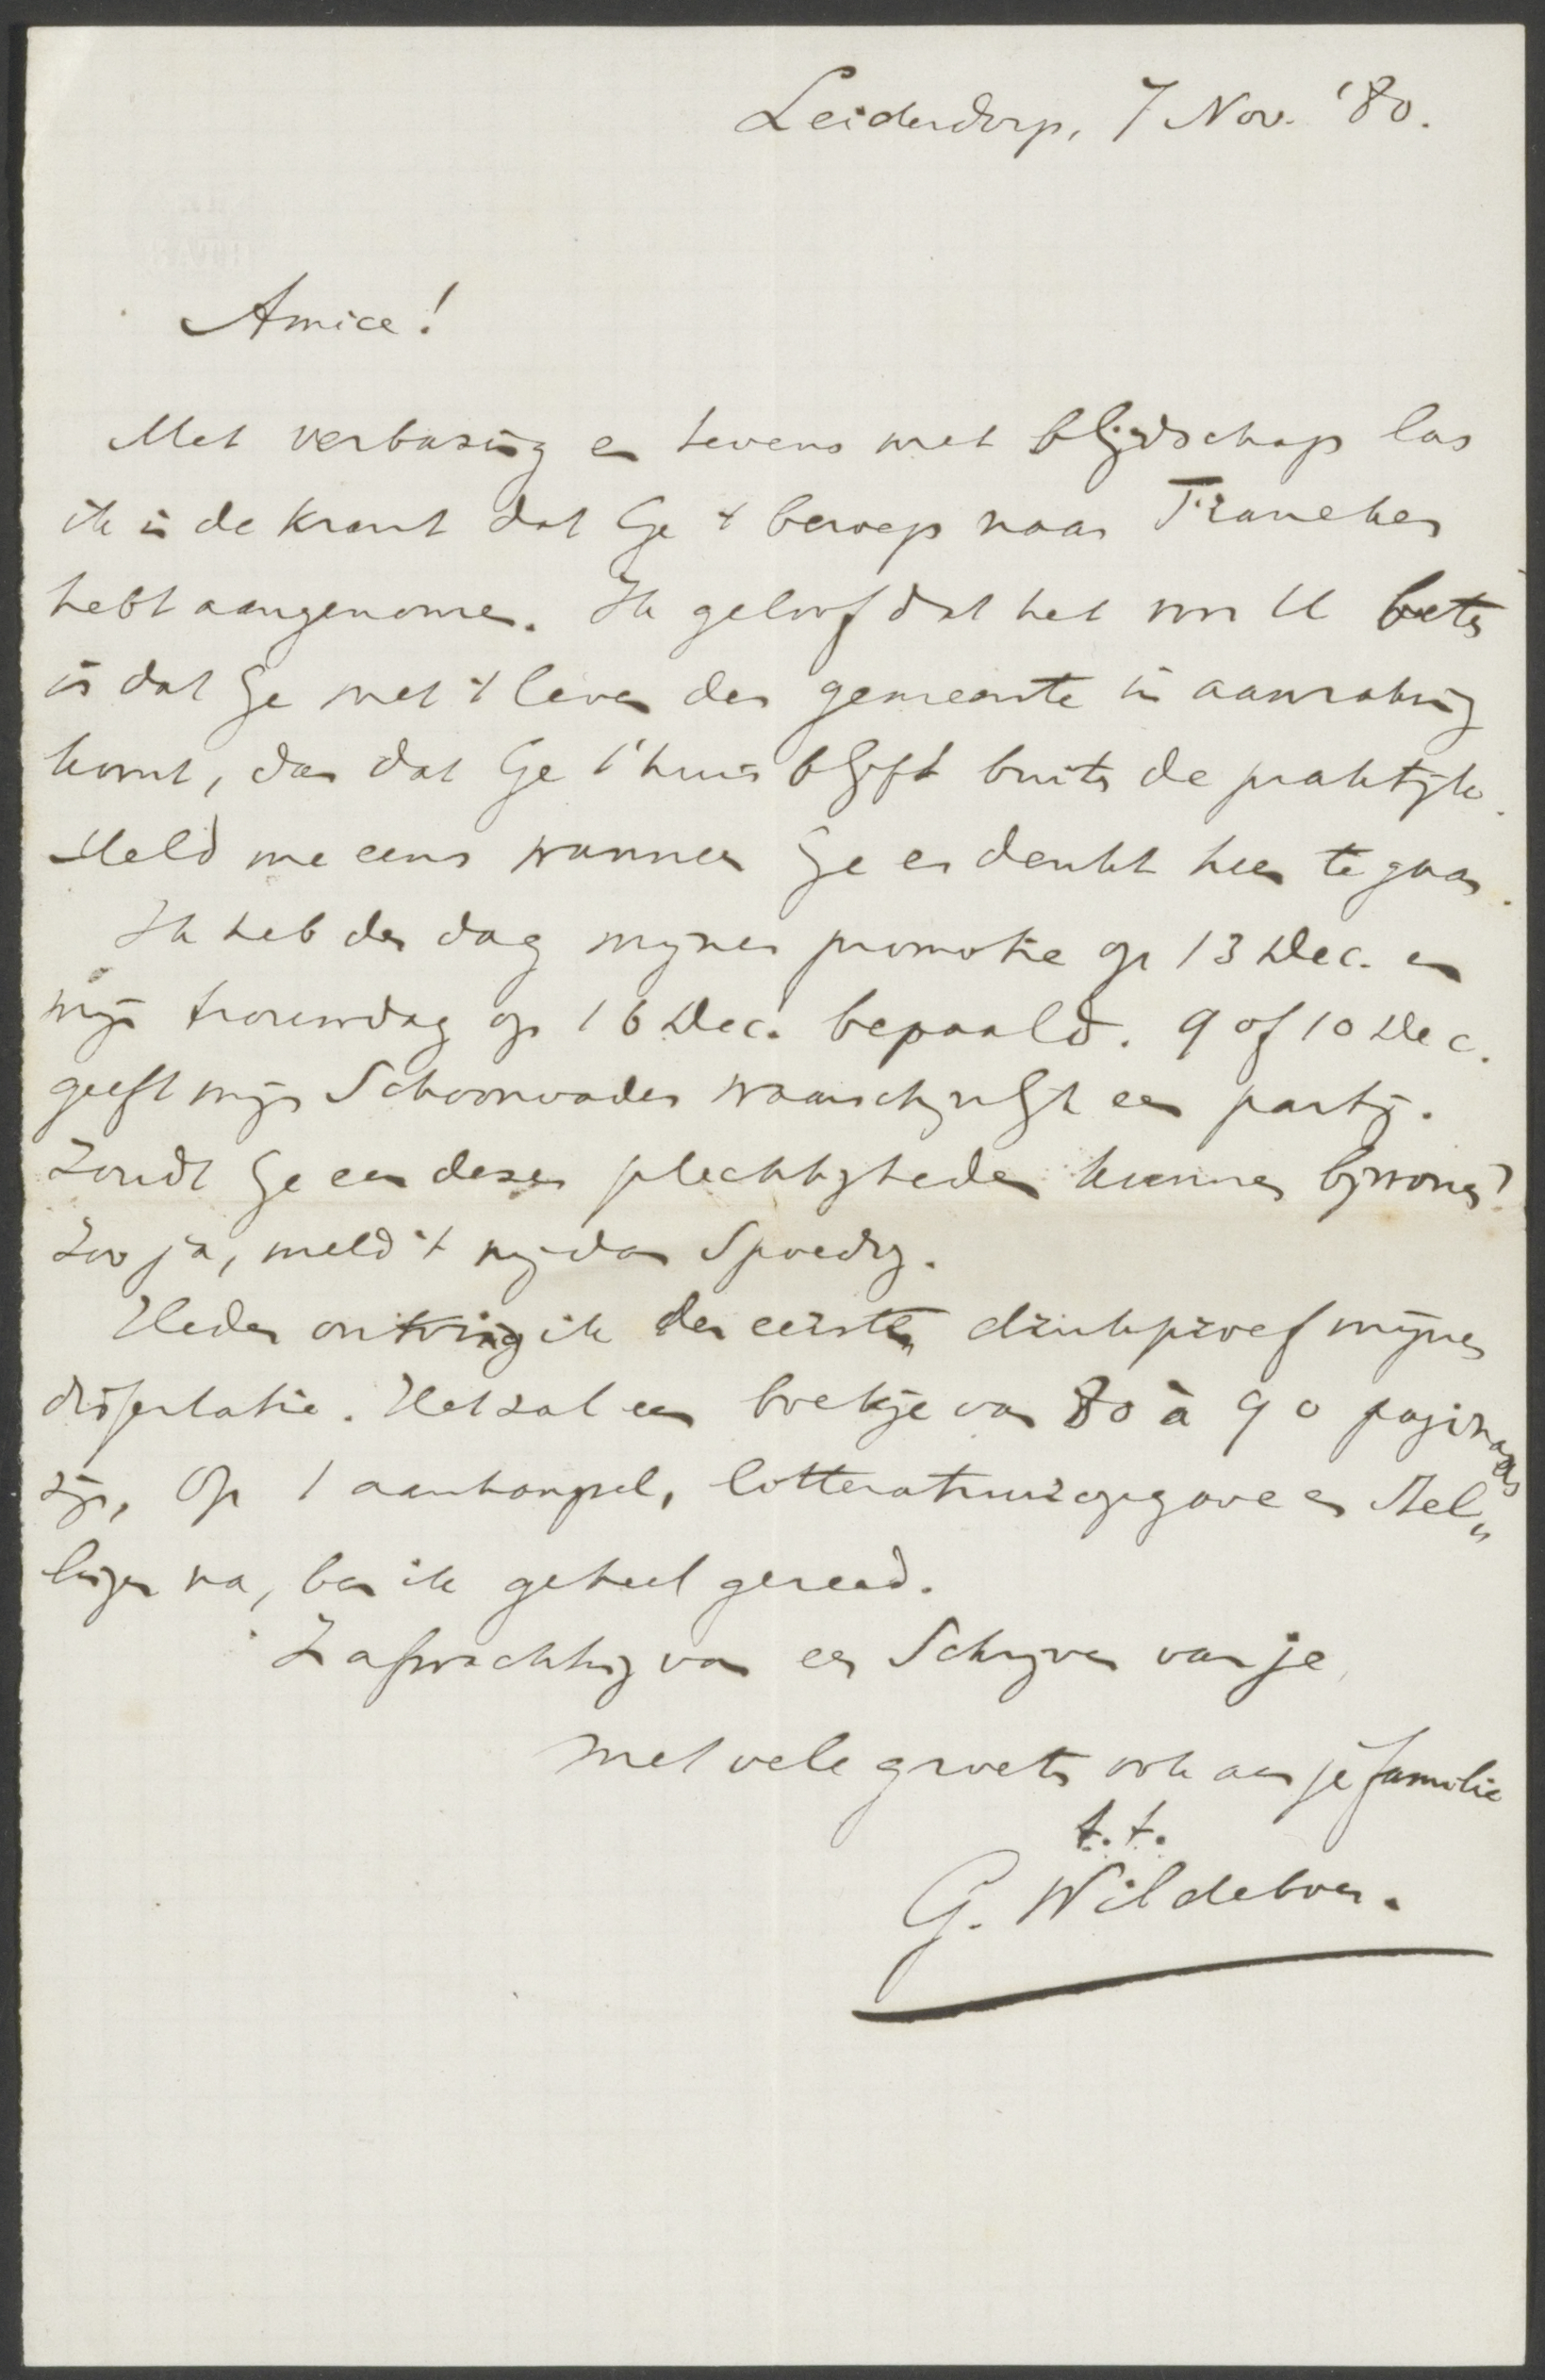 Leiderdorp, 7 Nov. '80.
Amice!
Met verbazing en tevens met blijdschap las
ik in de krant dat Ge 't beroep naar Franeker
hebt aangenomen. Ik geloof dat het voor U beter
is dat Ge met 't leven der gemeente in aanraking
komt, dan dat Ge t'huis blijft buiten de praktijk.
Meld me eens wanneer Ge er denkt heen te gaan.
Ik heb den dag mijner promotie op 13 Dec. en
mijn trouwdag op 16 Dec. bepaald. 9 of 10 Dec.
geeft mijn Schoonvader waarschijnlijk een partij.
Zoudt Ge een dezer plechtigheden kunnen bijwonen?
Zoo ja, meld 't mij dan spoedig.
Heden ontving ik den eersten drukproef mijner
dissertatie. Het zal een boekje van 80 à 90 pagina's
zijn. Op 1 aanhangsel, litteratuuropgave en stel„
lingen na, ben ik geheel gereed.
In afwachting van een Schrijven van je
met vele groeten ook aan je familie
t.t.
G. Wildeboer.